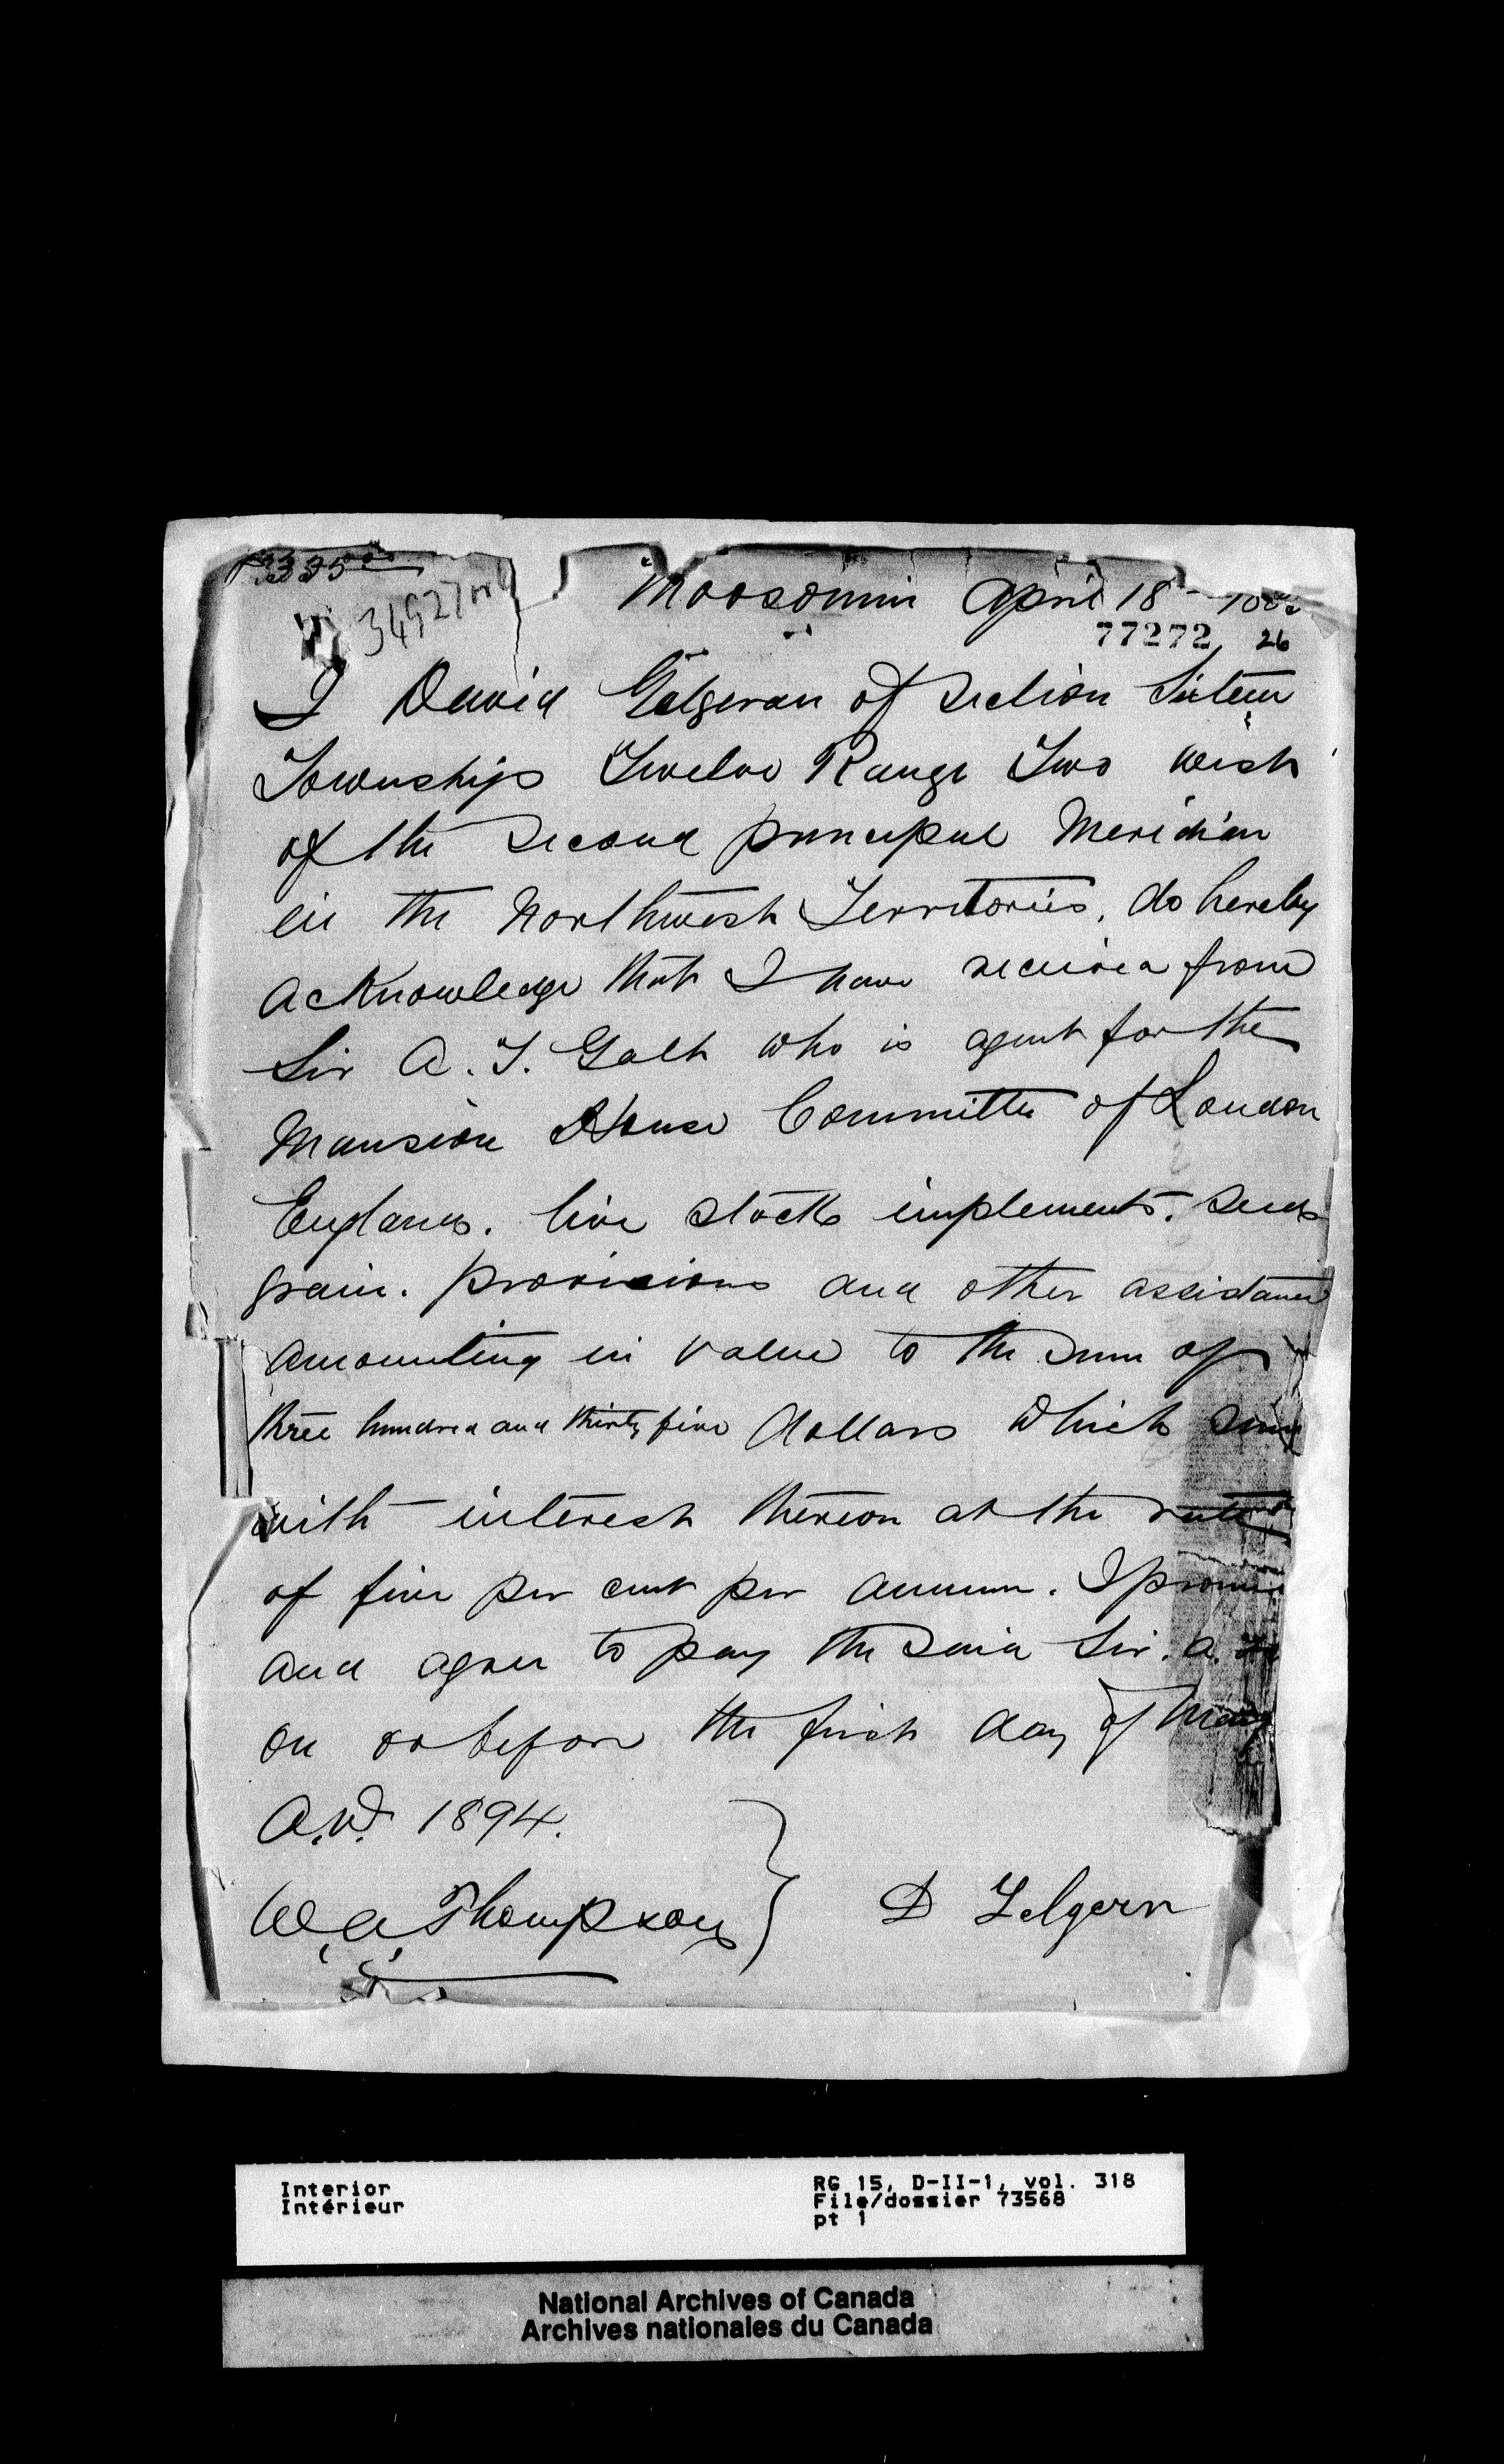 $335.00
34927
Moosomin April 18
77272 26
I David of Section Sixteen
Township Twelve Range Two West
of the Second principal Meridian
in the Northwest Territories, do hereby
acknowledge that I have received from
Sir A. T. Galt who is agent for the
Mansion House Committee of London
England. live stock implements. seed
grain. provisions and other assistance
amounting in value to the sum of
three hundred and thirty five dollars which sum
with interest thereon at the rate
of five per cent per annum. I promise
and agree to pay the said Sir. A.
on or before the first day of May
A.D. 1894.
W. A. Thompson } D Gelgern
Interior
Intérieur
RG 15, D-II-1, vol. 318
File/dossier 73568
pt 1
National Archives of Canada
Archives nationales du Canada